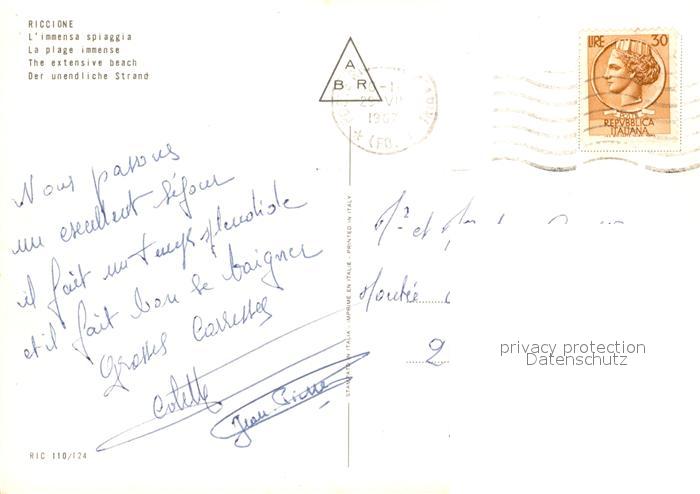 RICCIONE
L'immensa spiaggia
La plage immense
The extensive beach
Der unendliche Strand
A
B R
1967
(FO
LIRE 30
POSTE
REPVBBLICA
ITALIANA
Nous passons
un excellent séjour
il fait un temps splendide
et il fait bon se baigner
Grosses Caresses
Colette
Jean-Pierre
STAMPATO IN ITALIA - IMPRIMÉ EN ITALIE - PRINTED IN ITALY
et
Montée
2
privacy protection
Datenschutz
RIC 110/124